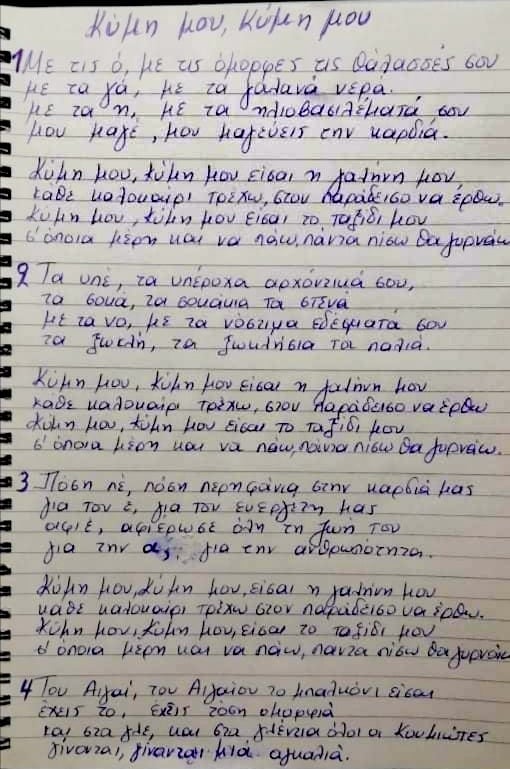 Κύμη μου, Κύμη μου
1 Με τις ό, με τις όμορφες τις θάλασσές σου
με τα γα, με τα γαλανά νερά.
με τα η, με τα ηλιοβασιλέματά σου
μου μαγέ, μου μαγεύεις την καρδιά.
Κύμη μου, Κύμη μου είσαι η γαλήνη μου,
κάθε καλοκαίρι τρέχω, στον παράδεισο να έρθω.
Κύμη μου, Κύμη μου είσαι το ταξίδι μου
σ' όποια μέρη και να πάω, πάντα πίσω θα γυρνάω
2 Τα υπέ, τα υπέροχα αρχόντικά σου,
τα σοκά, τα σοκάκια τα στενά
με τα νο, με τα νόστιμα εδέσματά σου
τα ξωκλή, τα ξωκλήσια τα παλιά.
Κύμη μου, Κύμη μου είσαι η γαλήνη μου
κάθε καλοκαίρι τρέχω, στον παράδεισο να έρθω
Κύμη μου, Κύμη μου είσαι το ταξίδι μου
σ' όποια μέρη και να πάω, πάντα πίσω θα γυρνάω.
3 Πόση πέ, πόση περηφάνια στην καρδιά μας
για τον έ, για τον ευεργέτη μας
αφιέ, αφιέρωσε όλη τη ζωή του
για την α, για την ανθρωπότητα.
Κύμη μου, Κύμη μου, είσαι η γαλήνη μου
κάθε καλοκαίρι τρέχω στον παράδεισο να έρθω.
Κύμη μου, Κύμη μου, είσαι το ταξίδι μου
σ' όποια μέρη και να πάω, πάντα πίσω θα γυρνάω
4 Του Αιγαί, του Αιγαίου το μπαλκόνι είσαι
έχεις το, έχεις τόση ομορφιά
και στα γλέ, και στα γλέντια όλοι οι Κουμιώτες
γίνονται, γίνονται μιά αγκαλιά.